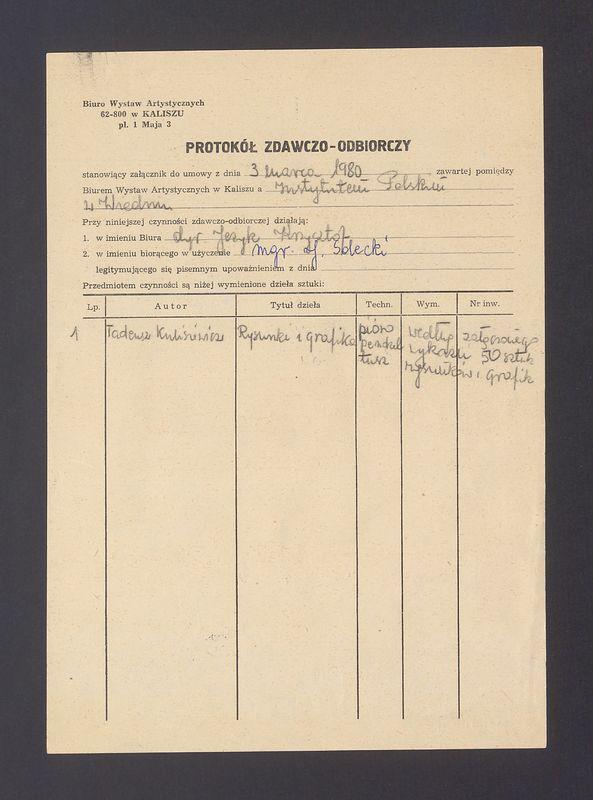 Biuro Wystaw Artystycznych
62-800 w KALISZU
pl. 1 Maja 3
PROTOKÓŁ ZDAWCZO-ODBIORCZY
stanowiący załącznik do umowy z dnia 3 marca 1980 zawartej pomiędzy
Biurem Wystaw Artystycznych w Kaliszu a Instytutem Polskim
w Wiedniu
Przy niniejszej czynności zdawczo-odbiorczej działają:
1. w imieniu Biura dyr Jeżyk Krzysztof
2. w imieniu biorącego w użyczenie mgr. J. Solecki
legitymującego się pisemnym upoważnieniem z dnia
Przedmiotem czynności są niżej wymienione dzieła sztuki:
Lp. Autor Tytuł dzieła Techn. Wym. Nr inw.
1 Tadeusz Kulisiewicz Rysunki i grafika pióro według załączonego
pendzel wykazu 50 sztuk
tusz rysunków i grafik